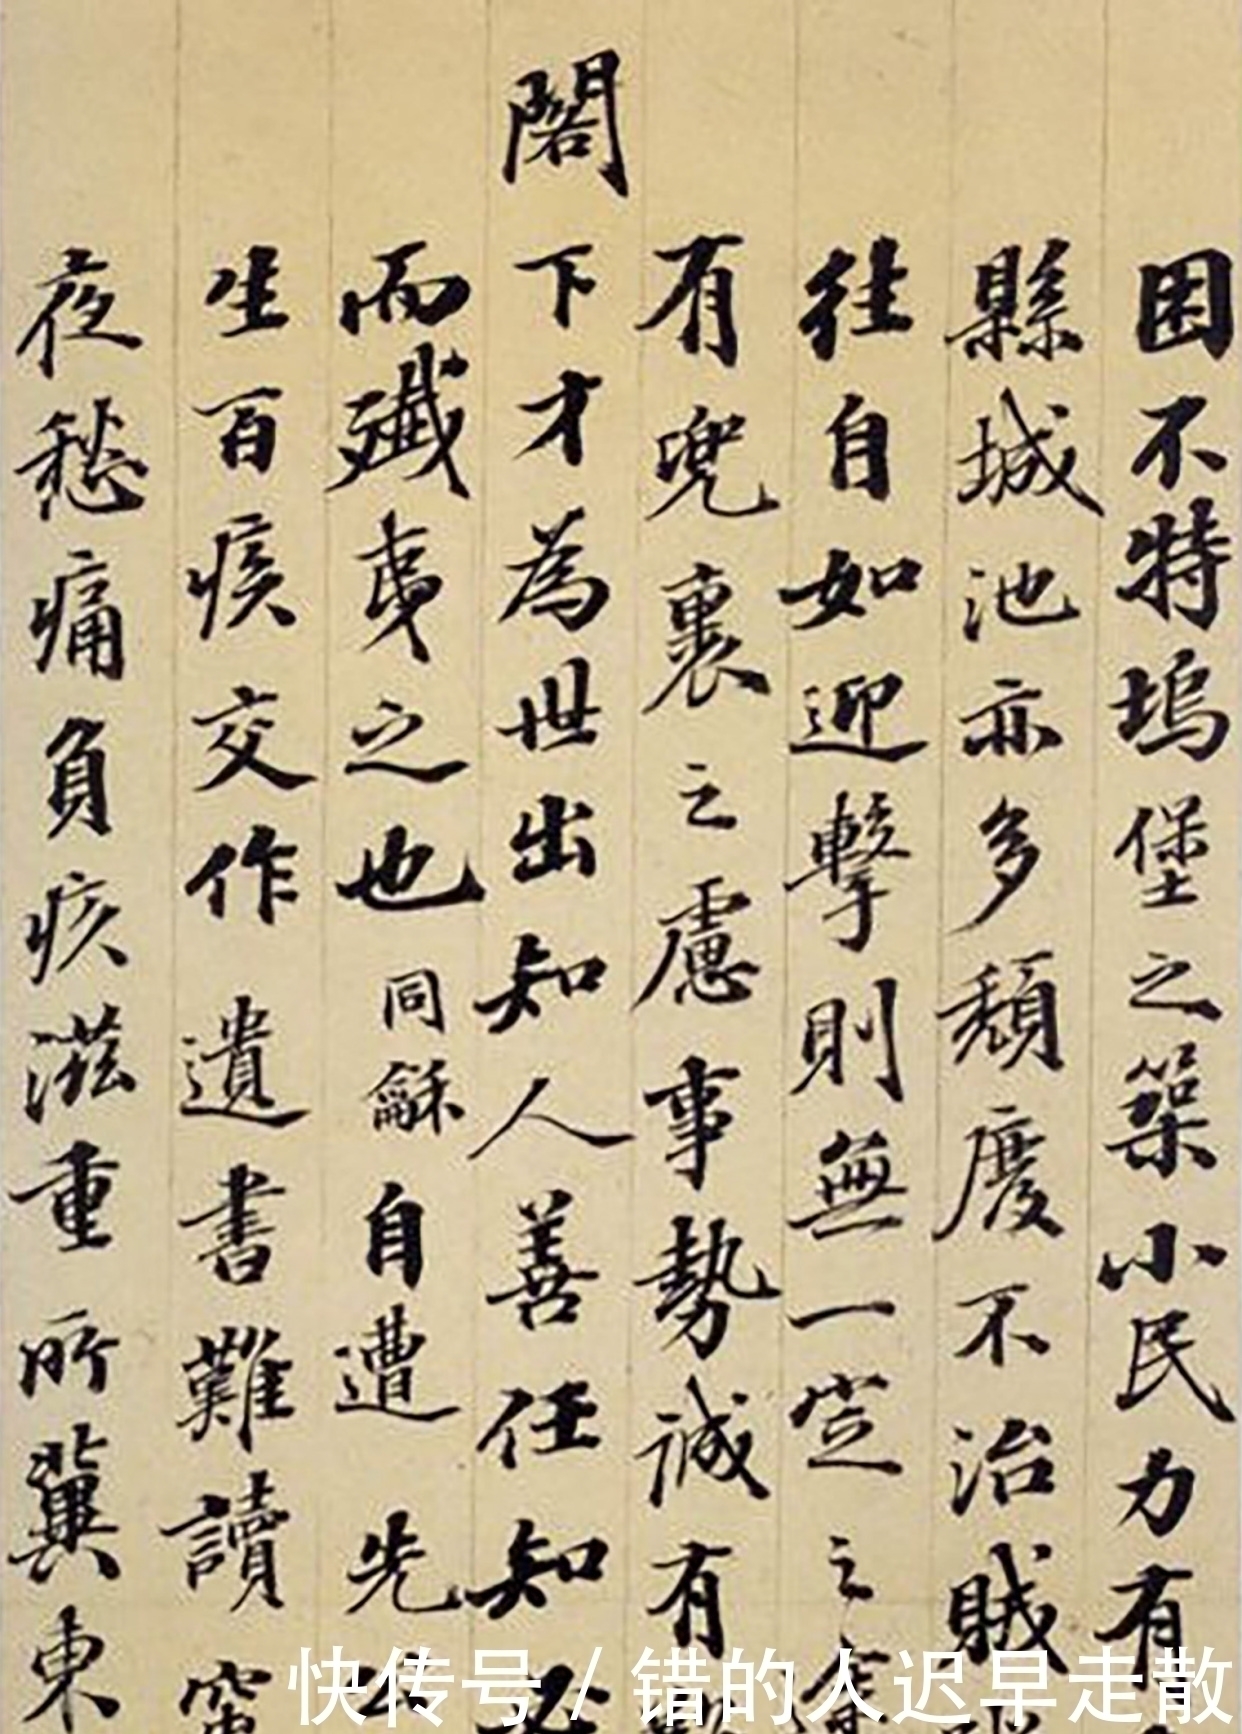 困不特塢堡之築小民力有
縣城池亦多頹廢不治賊
往自如迎擊則無一定之
有兜裹之慮事勢誠有
閣下才為世出知人善任知
而殲夷之也同龢自遭先
生百疾交作遺書難讀
夜愁痛負疚滋重所冀東
快传号/错的人迟早走散